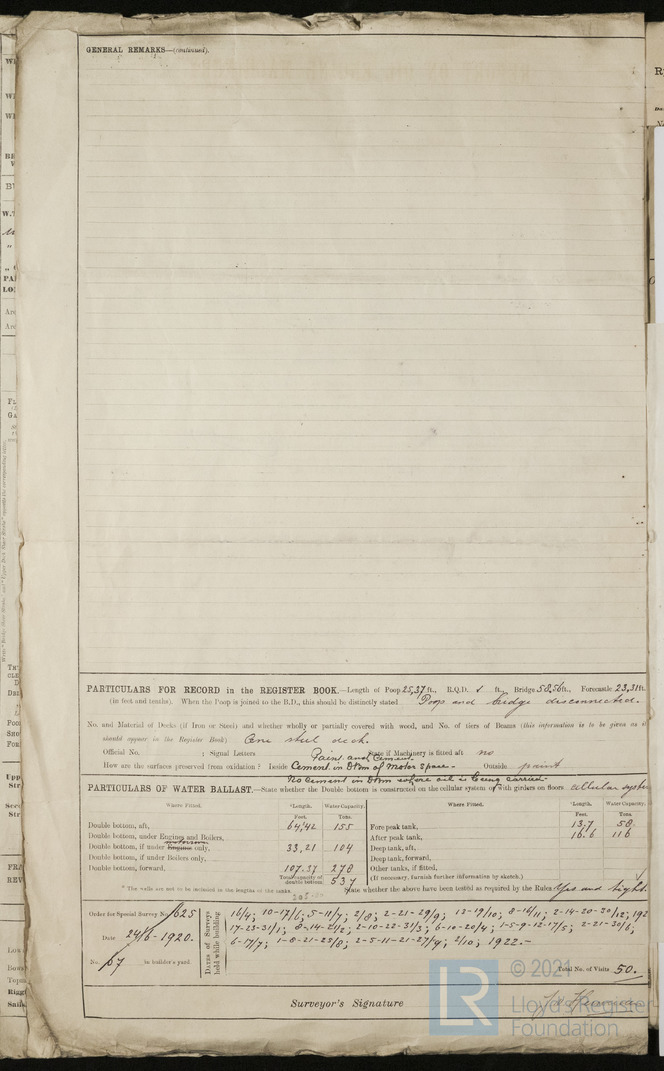 GENERAL REMARKS—(continued).
PARTICULARS FOR RECORD in the REGISTER BOOK.—Length of Poop 25,37 ft., R.Q.D. ft., Bridge 58.56 ft., Forecastle 23,31 ft.
(in feet and tenths). When the Poop is joined to the B.D., this should be distinctly stated Poop and bridge disconnected.
No. and Material of Decks (if Iron or Steel) and whether wholly or partially covered with wood, and No. of tiers of Beams (this information is to be given as it
should appear in the Register Book) One steel deck.
Official No. ; Signal Letters State if Machinery is fitted aft no
Paint and Cement
How are the surfaces preserved from oxidation? Inside Cement in Dbm of Motor Space - Outside paint
No Cement in Dbm where oil is being carried
PARTICULARS OF WATER BALLAST.—State whether the Double bottom is constructed on the cellular system or with girders on floors cellular system
Where Fitted. *Length. Water Capacity. Where Fitted. *Length. Water Capacity.
Feet. Tons. Feet. Tons.
Double bottom, aft, 64,42 155 Fore peak tank, 13.7 58
Double bottom, under Engines and Boilers, After peak tank, 16.6 116
Double bottom, if under Engines only, 33,21 104 Deep tank, aft,
Double bottom, if under Boilers only, Deep tank, forward,
Double bottom, forward, 107.37 278 Other tanks, if fitted,
Total capacity of double bottom 537 (If necessary, furnish further information by sketch.)
* The wells are not to be included in the lengths of the tanks. State whether the above have been tested as required by the Rules Yes and tight.
205
Order for Special Survey No. 625
Date 24/6-1920.
No. 67 in builder's yard.
Dates of Surveys held while building
16/4; 10-17/6; 5-11/7; 2/8; 2-21-29/9; 13-19/10; 8-16/11; 2-14-20-30/12; 192
17-23-31/1; 8-14-21/2; 2-10-22-31/3; 6-10-20/4; 1-5-9-12-17/5; 2-21-30/6;
6-17/7; 1-8-21-25/8; 2-5-11-21-27/9; 2/10; 1922.-
Total No. of Visits 50.
Surveyor's Signature
LR
© 2021
Lloyd's Register
Foundation